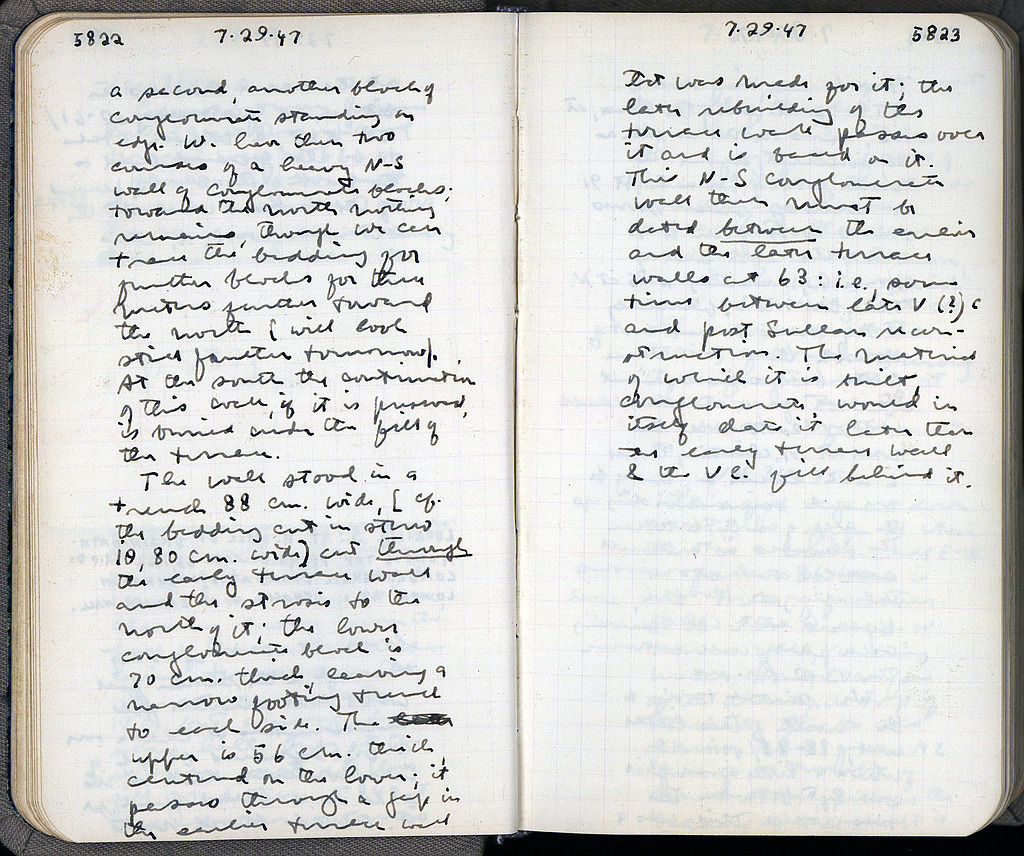 5822
7.29.47
a second, another block of
conglomerate standing on
edge. We have then two
courses of a heavy N-S
wall of conglomerate blocks;
toward the north nothing
remains, though we can
trace the bedding for
further blocks for three
meters further toward
the north [will look
still further tomorrow].
At the south the continuation
of this wall, if it is preserved,
is buried under the fill of
the terrace.
The wall stood in a
trench 88 cm. wide, [cf.
the bedding cut in stereo
10, 80 cm. wide] cut through
the early terrace wall
and the strosis to the
north of it; the lower
conglomerate block is
70 cm. thick leaving a
narrow footing trench
to each side. The
upper is 56 cm. thick,
centered on the lower; it
passes through a gap in
the earlier terrace wall
7.29.47
5823
that was made for it; the
later rebuilding of the
terrace wall passes over
it and is based on it.
This N-S conglomerate
wall then must be
dated between the earlier
and the later terrace
walls at 63: i.e., some
time between late V (?) c
and post Sullan recon-
struction. The material
of which it is built,
conglomerate, would in
itself date it later than
early terrace wall
& the V c. fill behind it.